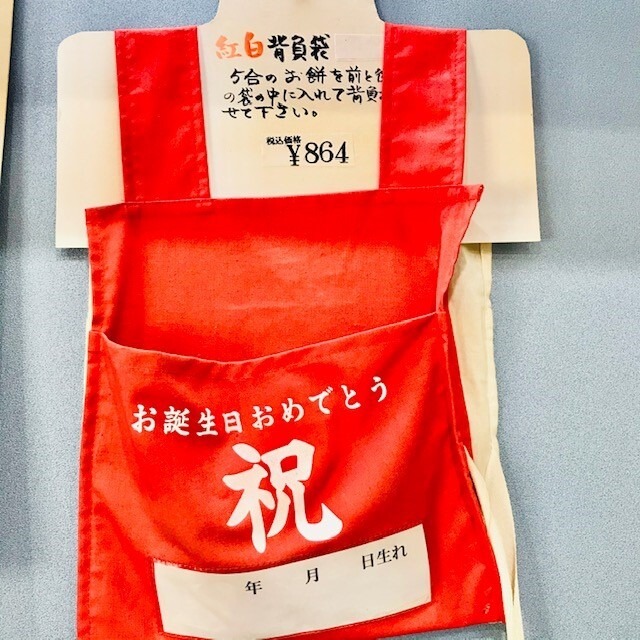 紅白背負袋
5合のお餅を前と後
の袋の中に入れて背負わ
せて下さい。
税込価格
¥864
お誕生日おめでとう
祝
年 月 日生れ